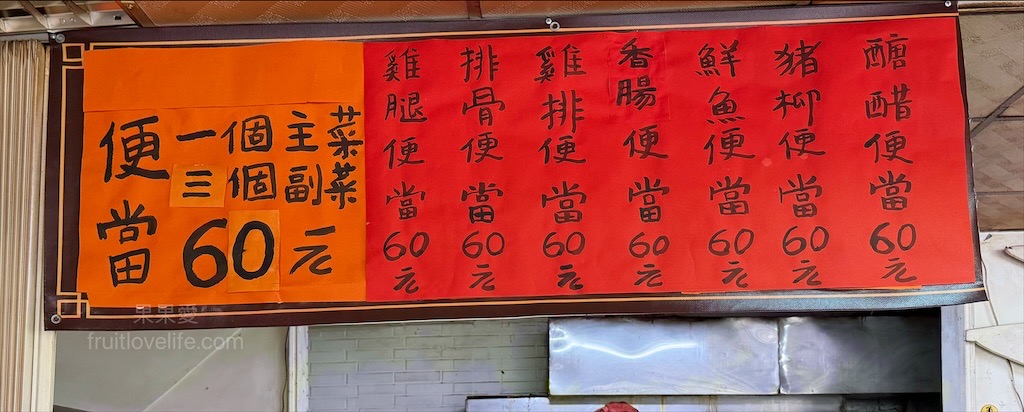 便當
一個主菜
三個副菜
60元
雞腿便當60元
排骨便當60元
雞排便當60元
香腸便當60元
鮮魚便當60元
豬柳便當60元
醣醋便當60元
果果愛
fruitlovelife.com